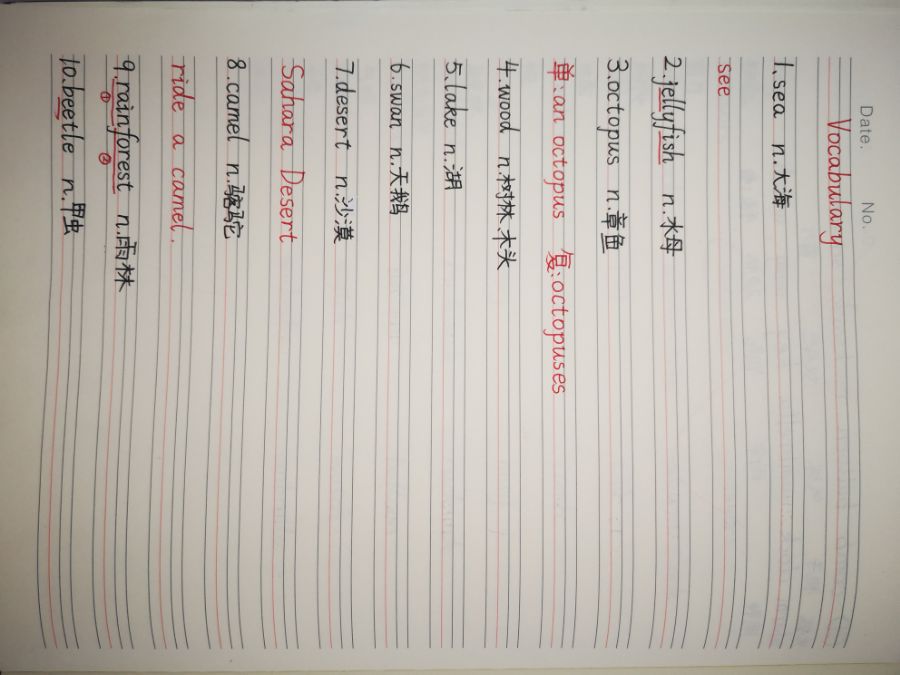 Date. No.
Vocabulary
1.sea n.大海
see
2.jellyfish n.水母
3.octopus n.章鱼
单:an octopus 复:octopuses
4.wood n.树林.木头
5.lake n.湖
6.swan n.天鹅
7.desert n.沙漠
Sahara Desert
8.camel n.骆驼
ride a camel.
9.rainforest n.雨林
① ②
10.beetle n.甲虫